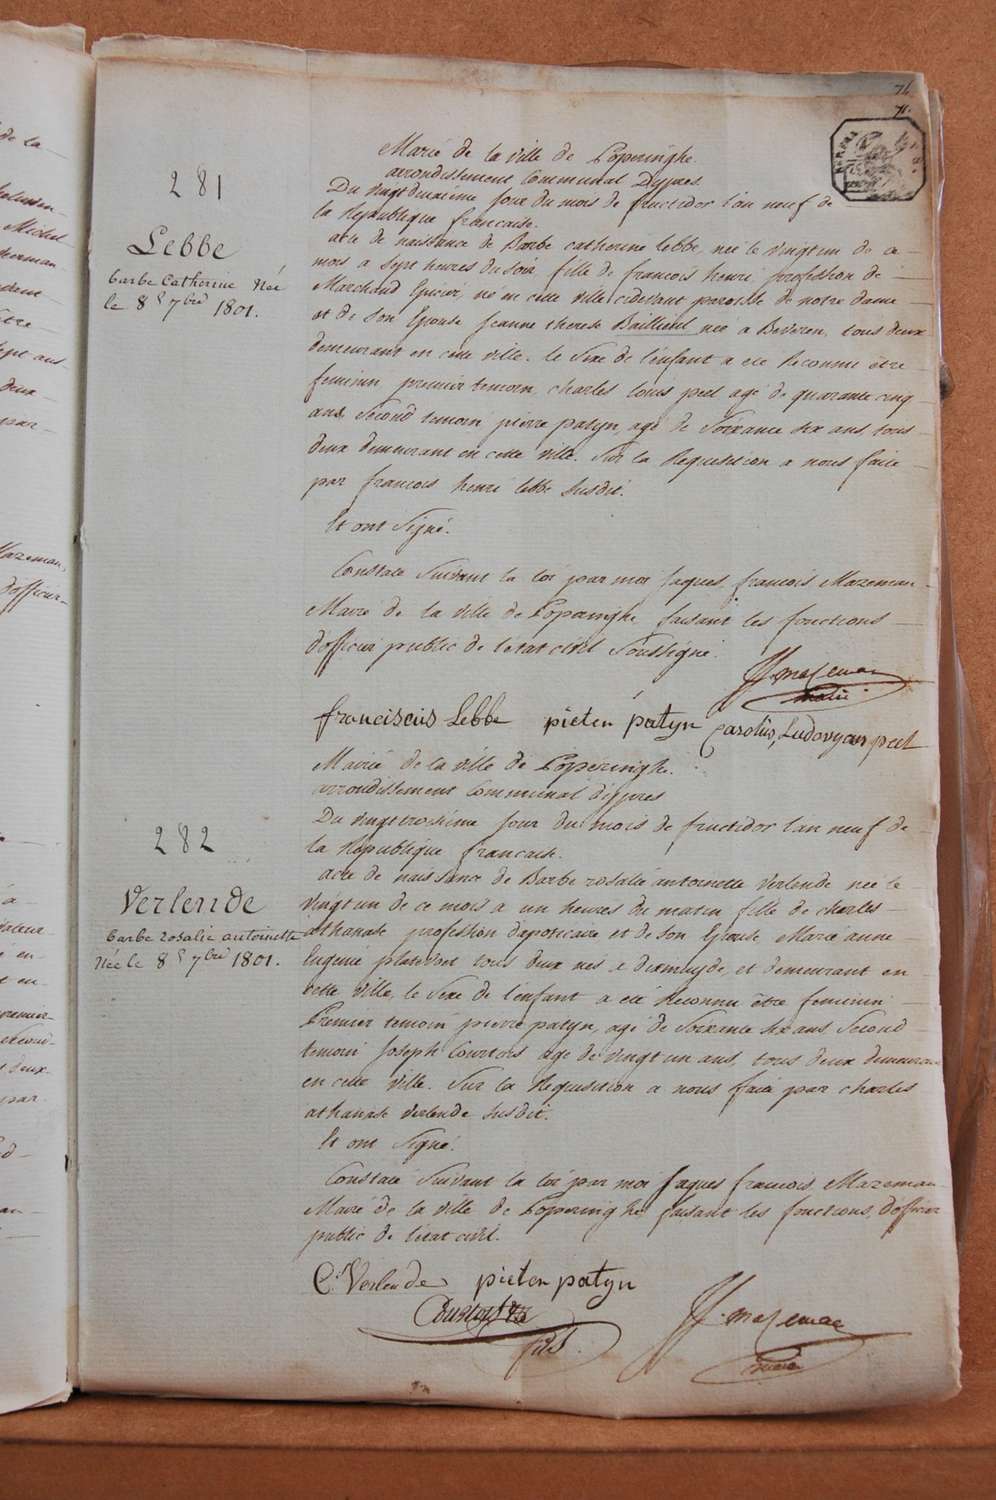 74
71.
281
Lebbe
barbe Catherine Née
le 8 7bre 1801.
Marié de la ville de Poperinghe
arrondissement Communal Dypres
Du vingt deuxième jour du mois de fructidor l'an neuf de
la République francaise.
acte de naissance de Barbe catherine lebbe, née le vingt un de ce
mois a sept heures du soir, fille de francois henri profession de
Marchand Epicier, né en cette ville cidevant paroisse de notre dame
et de son Epouse Jeanne therese Baillieul née a Beveren, tous deux
demeurant en cette ville. le Sexe de l'enfant a été Reconnu être
feminin premier temoin, charles louis peel agé de quarante cinq
ans. Second temoin pierre patyn, agé de Soixante six ans, tous
deux demeurant en cette ville. Sur la Requisition a nous faite
par francois henri lebbe susdit.
Et ont Signé.
Constaté Suivant la loi par moi Jaques francois Mazeman
Maire de la ville de Poperinghe faisant les fonctions
d'officier public de letat civil Soussigné.
JJ. mazeman
maire
franciscus Lebbe pieter patyn Carolus, Ludovycus peel
Mairié de la ville de Poperinghe.
arrondissement Communal d'ypres
282
Verlende
barbe rosalie antoinette
Née le 8 7bre 1801.
Du vingt troisième jour du mois de fructidor l'an neuf de
la République francaise.
acte de naissance de Barbe rosalie antoinette Verlende née le
vingt un de ce mois a un heures du matin fille de charles
athanase profession d'apoticaire et de son Epouse Marie anne
Eugénie platevoet tous deux nes a dixmuyde, et demeurant en
cette ville, le Sexe de l'enfant a été Reconnu être feminin
Premier temoin pierre patyn, agé de Soixante six ans, Second
temoin Joseph Courtois agé de vingt un ans, tous deux demeurant
en cette ville. Sur la Requisition a nous faite par charles
athanase verlende susdit.
Et ont Signé.
Constaté Suivant la loi par moi Jaques francois Mazeman
Maire de la ville de Poperinghe faisant les fonctions, d'officier
public de l'etat civil.
C. Verlende pieter patyn
Courtois
fils.
JJ. mazeman
maire